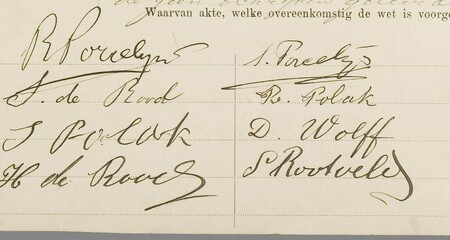 Waarvan akte, welke overeenkomstig de wet is voorge
R Porcelyn
S. Porcelijn
S. de Rood
R. Polak
S Polak
D. Wolff
H de Rood
S Rootveld